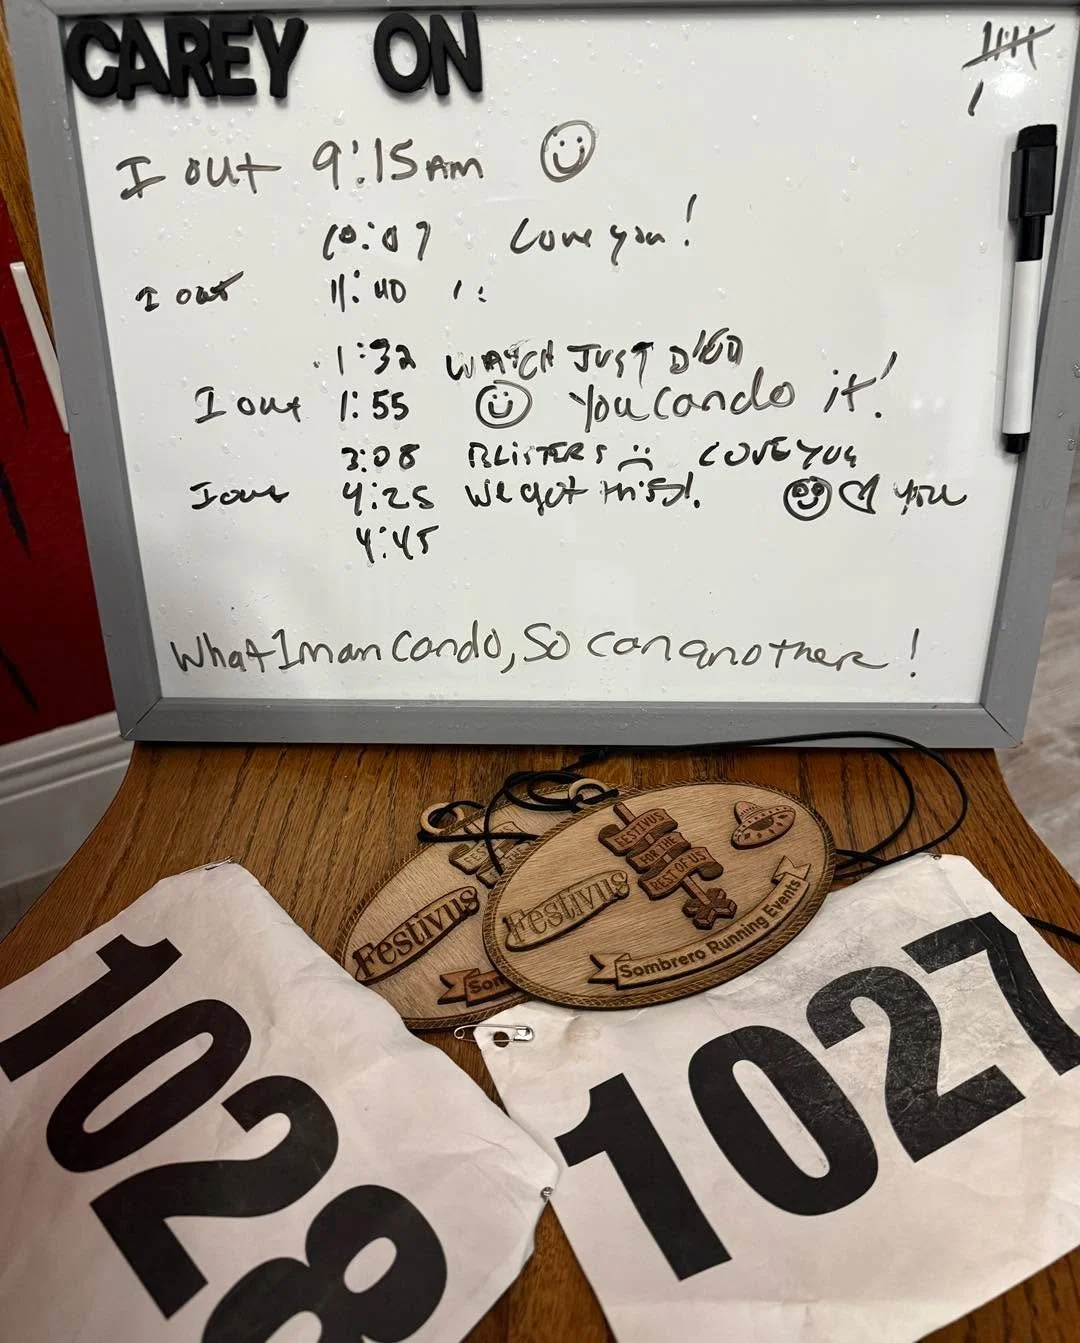 CAREY ON
I out 9:15 AM
10:07 Love you!
I out 11:40
1:32 WATCH JUST DIED
I out 1:55 You can do it!
3:08 BLISTERS LOVE YOU
I out 4:25 We got this! you
4:45
What 1 man can do, So can another!
FESTIVUS
FOR THE
REST OF US
Festivus
Sombrero Running Events
Festivus
Som
1028
1027